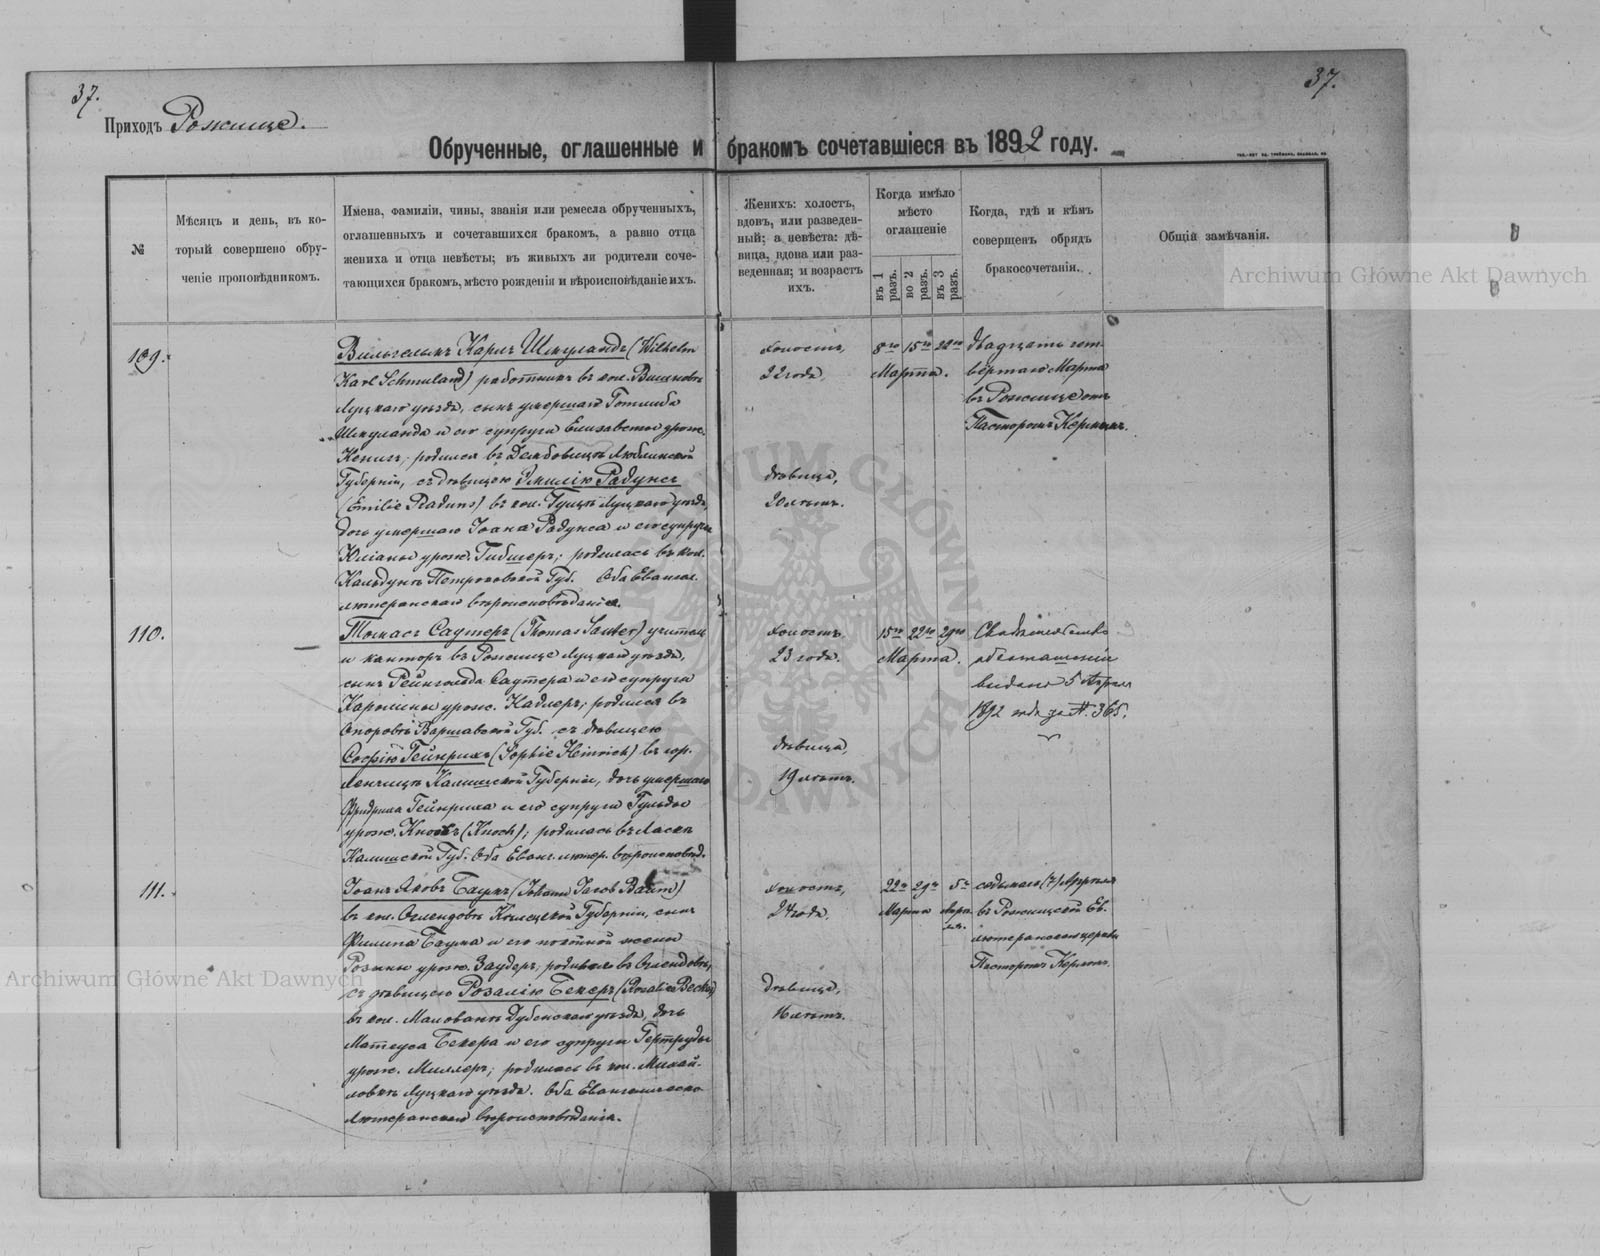 37.
37.
Приходъ Рожище.
Обрученные, оглашенные и бракомъ сочетавшіеся въ 1892 году.
№
Мѣсяцъ и день, въ ко-
торый совершено обру-
ченіе проповѣдникомъ.
Имена, фамиліи, чины, званія или ремесла обрученныхъ,
оглашенныхъ и сочетавшихся бракомъ, а равно отца
жениха и отца невѣсты; въ живыхъ ли родители соче-
тающихся бракомъ, мѣсто рожденія и вѣроисповѣданіе ихъ.
Женихъ: холостъ,
вдовъ, или разведен-
ный; а невѣста: дѣ-
вица, вдова или раз-
веденная; и возрастъ
ихъ.
Когда имѣло
мѣсто
оглашеніе
въ 1 разъ.
во 2 разъ.
въ 3 разъ.
Когда, гдѣ и кѣмъ
совершенъ обрядъ
бракосочетанія.
Общія замѣчанія.
109.
Вильгельмъ Карлъ Шмуландъ (Wilhelm
Karl Schmuland) работникъ въ кол.
Луцкаго уѣзда, сынъ умершаго Готлиба
Шмуланда и его супруги Елизаветы урожд.
Кенигъ; родился въ Люблинской
Губерніи, съ дѣвицею Эмилію Радунсъ
(Emilie Raduns) въ кол. Луцкаго уѣзда,
дочь умершаго Іоана Радунса и его супруги
Юліаны урож. родилась въ кол.
Кальдунъ Петроковской Губ. Оба Евангел.
лютеранскаго вѣроисповѣданія.
холостъ,
22 года,
дѣвица,
20 лѣтъ.
8го 15го 22го
Марта.
двадцать чет-
вертаго Марта
въ Рожищѣ
Пасторомъ Кернъ
110.
Томасъ Саутеръ (Thomas Sauter) учитель
и канторъ въ Рожище Луцкаго уѣзда,
сынъ Рейнгольда Саутера и его супруги
Каролины урож. Кадлеръ; родился въ
Опоровѣ Варшавской Губ. съ дѣвицею
Софію Гейнрихъ (Sophie Heinrich) въ гор.
Ленчицѣ Калишской Губерніи, дочь умершаго
Фридриха Гейнриха и его супруги Гульды
урож. Кнохъ (Knoch); родилась въ Ласкѣ
Калишской Губ. Оба Еванг. лютер. вѣроисповѣд.
холостъ
23 года.
дѣвица,
19 лѣтъ.
15го 22го 29го
Марта.
Свидѣтельство
объ оглашеніи
выдано 5 Апрѣля
1892 года за №. 365.
111.
Іоанъ Яковъ Баумъ (Johann Jacob Baum)
въ кол. Оглендовъ Кѣлецкой Губерніи, сынъ
Филипа Баума и его покойной жены
Розины урож. Заудеръ, родился въ Оглендовѣ,
съ дѣвицею Розалію Бекеръ (Rosalie Becker)
въ кол. Маловане Дубенскаго уѣзда, дочь
Матеуса Бекера и его супруги Гертруды
урож. Миллеръ; родилась въ кол. Михай-
ловкѣ Луцкаго уѣзда. Оба Евангелическо
Лютеранскаго вѣроисповѣданія.
холостъ,
24 года.
дѣвица,
16 лѣтъ.
22го 29го 5го
Марта Апрѣ-
ля.
седьмаго (7) Апрѣля
въ Рожищской Ев.
лютеранской церкви
Пасторомъ Керномъ.
Archiwum Główne Akt Dawnych
Archiwum Główne Akt Dawnych
ARCHIWUM GŁÓWNE AKT DAWNYCH